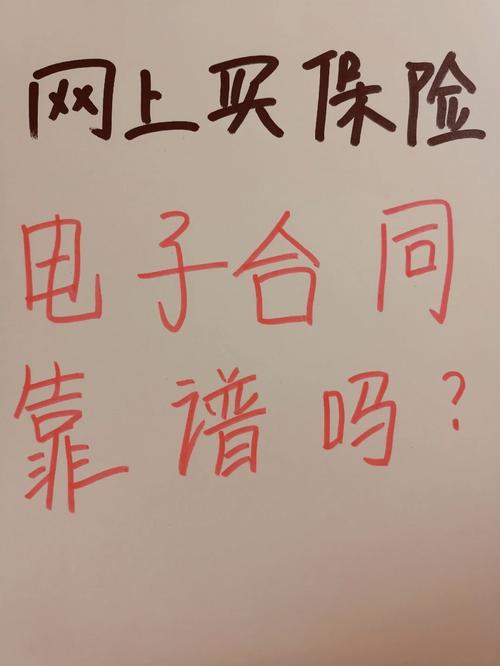 网上买保险
电子合同
靠谱吗?